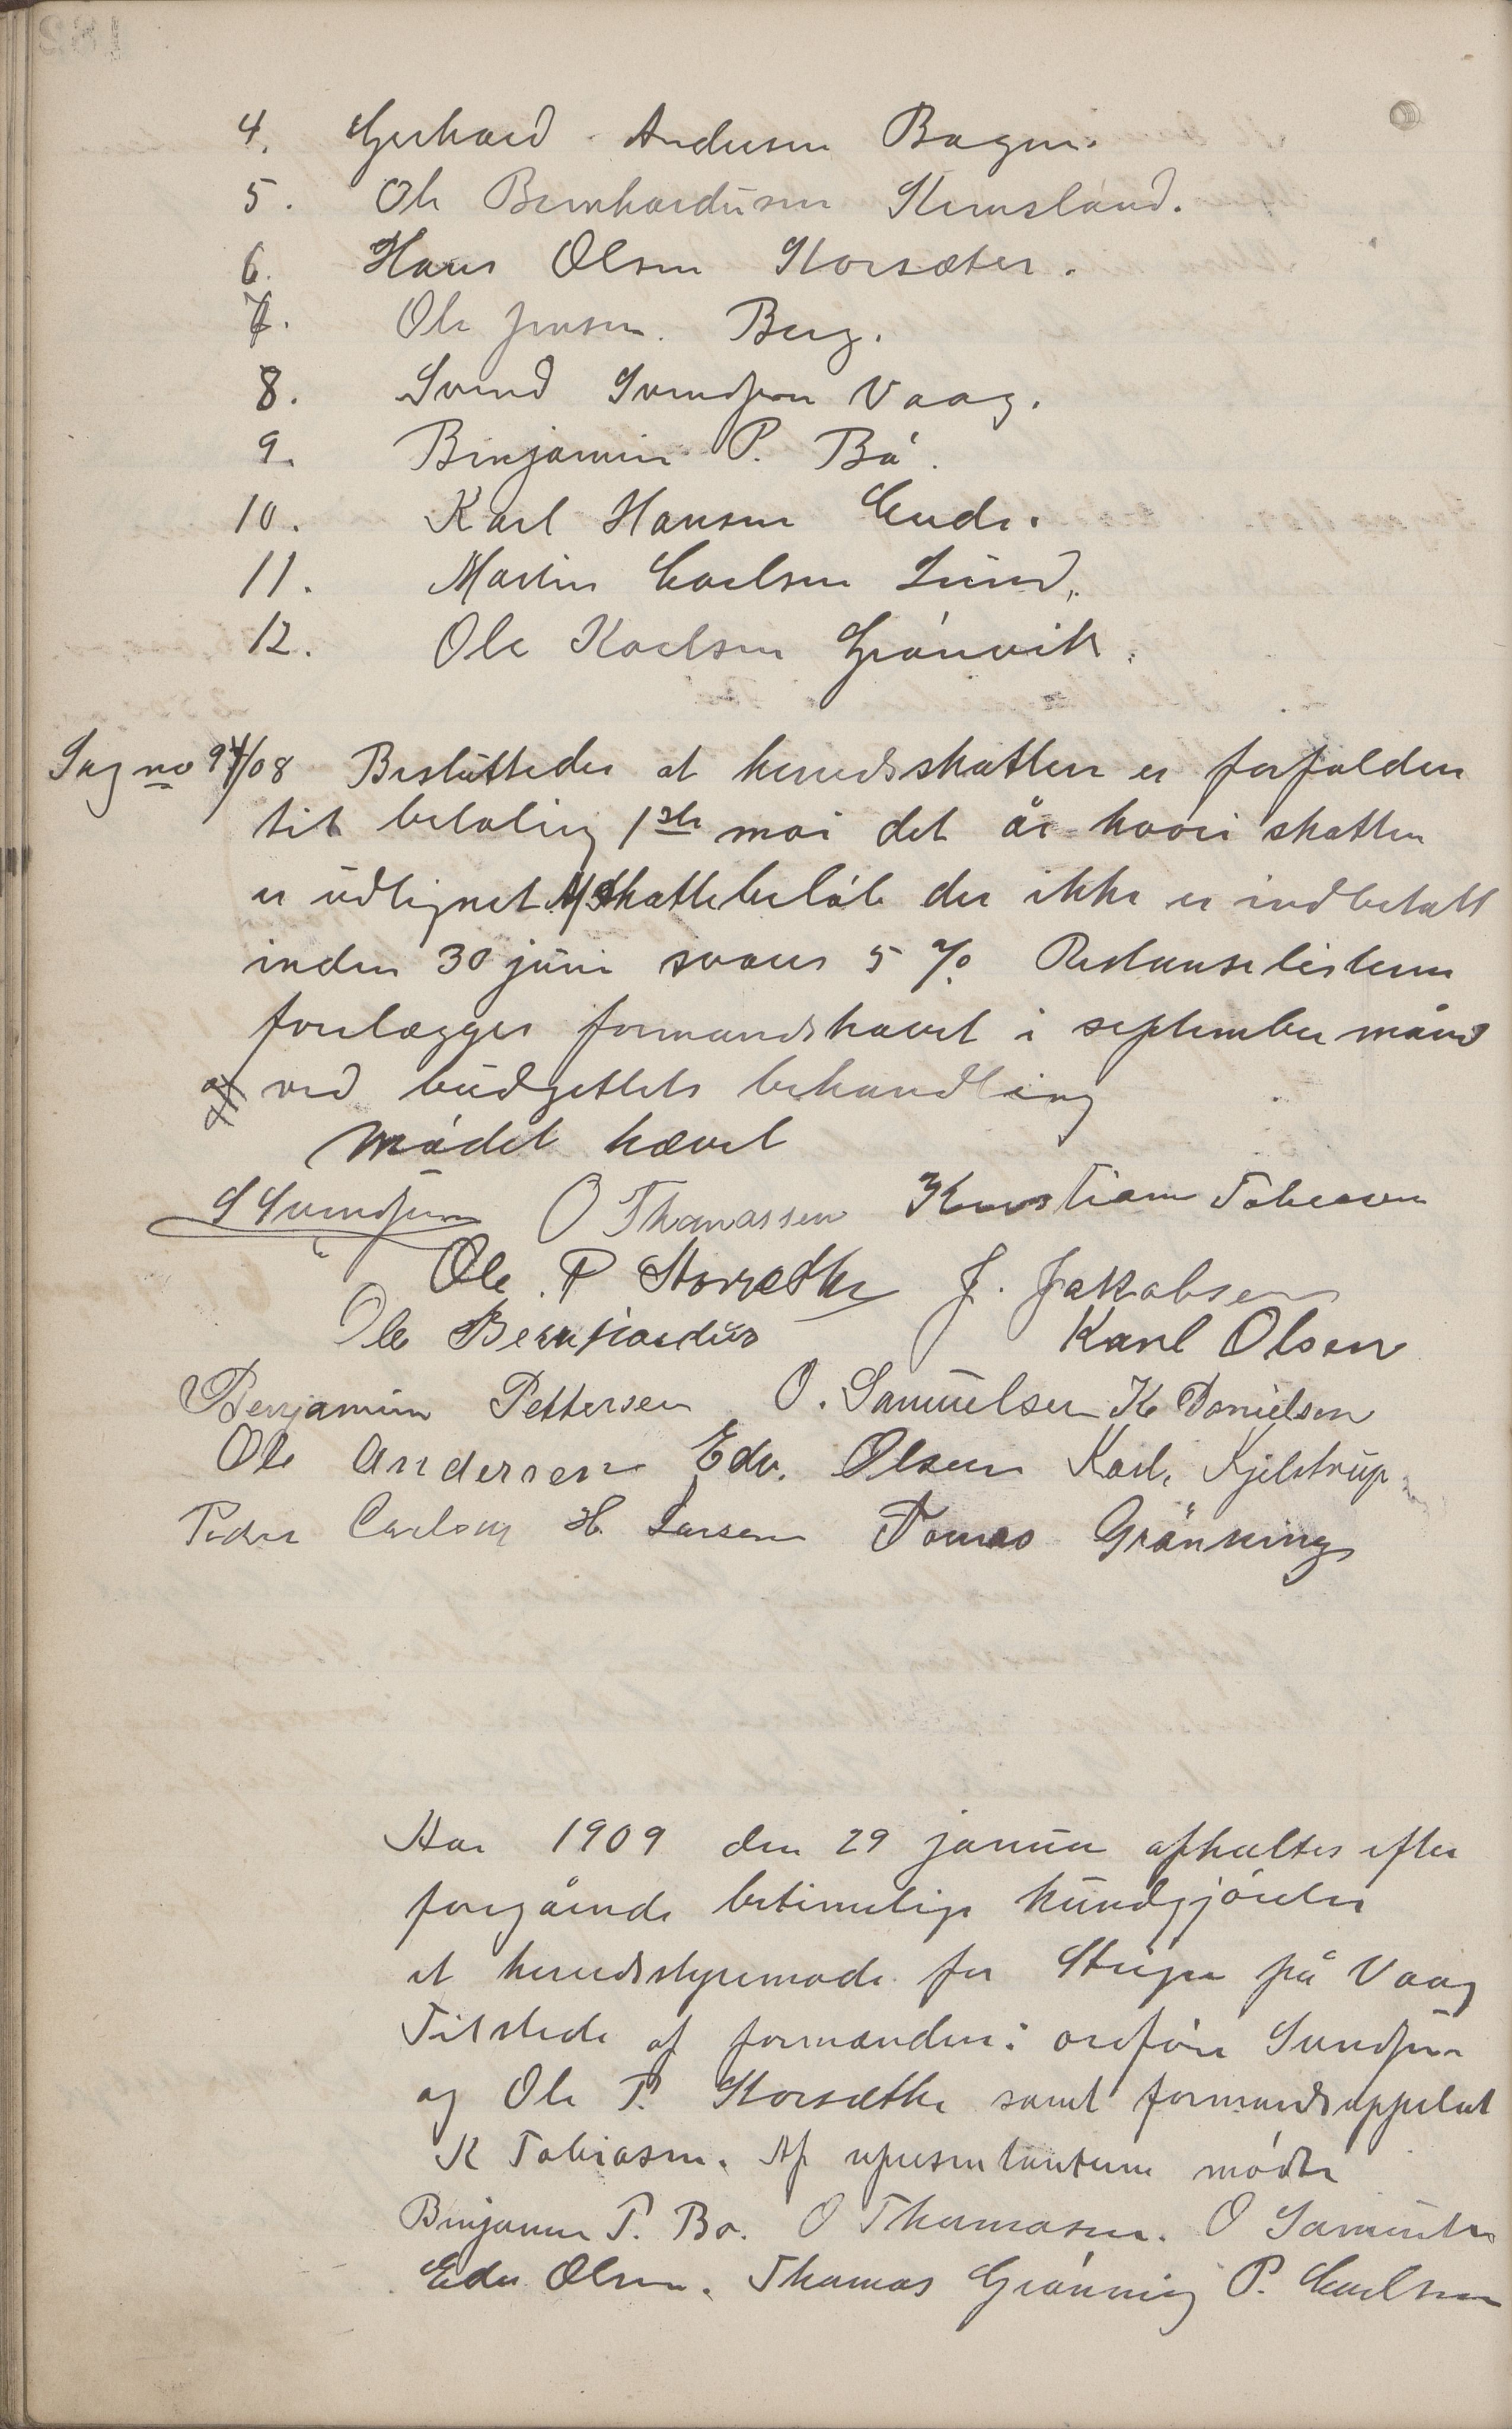 4. Gerhard Andersen Bogen.
5. Ole Bernhardusen Skensland.
6. Hans Olsen Storsæter.
7. Ole Jensen. Berg.
8. Svend Svendsen Vaag.
9. Benjamin P. Bö.
10. Karl Hansen Engen.
11. Martin Carlsen Lund.
12. Ole Karlsen Grönvik.
Sag no 94/08 Besluttedes at herredsskatten er forfalden
til betaling 1ste mai det år hvori skatten
er udlignet. Af skattebelöb der ikke er indbetalt
inden 30 juni svares 5 % Restanselisterne
forelægges formandskavet i september måned
ved budgettets behandling
Mödet hævet
S Svendsen O Thomassen Kristian Tobiassen
Ole P Storsæther J. Jakobsen
Ole Bernhardus Karl Olsen
Benjamin Pettersen O. Samuelsen K Danielsen
Ole Andersen Edv. Olsen Karl. Kjelstrup
Peder Carlsen H. Larsen Tomas Grönning
Aar 1909 den 29 januar afholtes efter
foregående betimelige kundgjörelse
et herredsstyremöde for Steigen på Vaag
Tilstede af formænden: ordförer Svendsen
og Ole P. Storsæther samt formandsuppleant
K Tobiasen. Af representanterne mödte
Benjamin P. Bö. O Thomasen. O Samuelsen
Edv Olsen. Thomas Grönning P. Carlsen